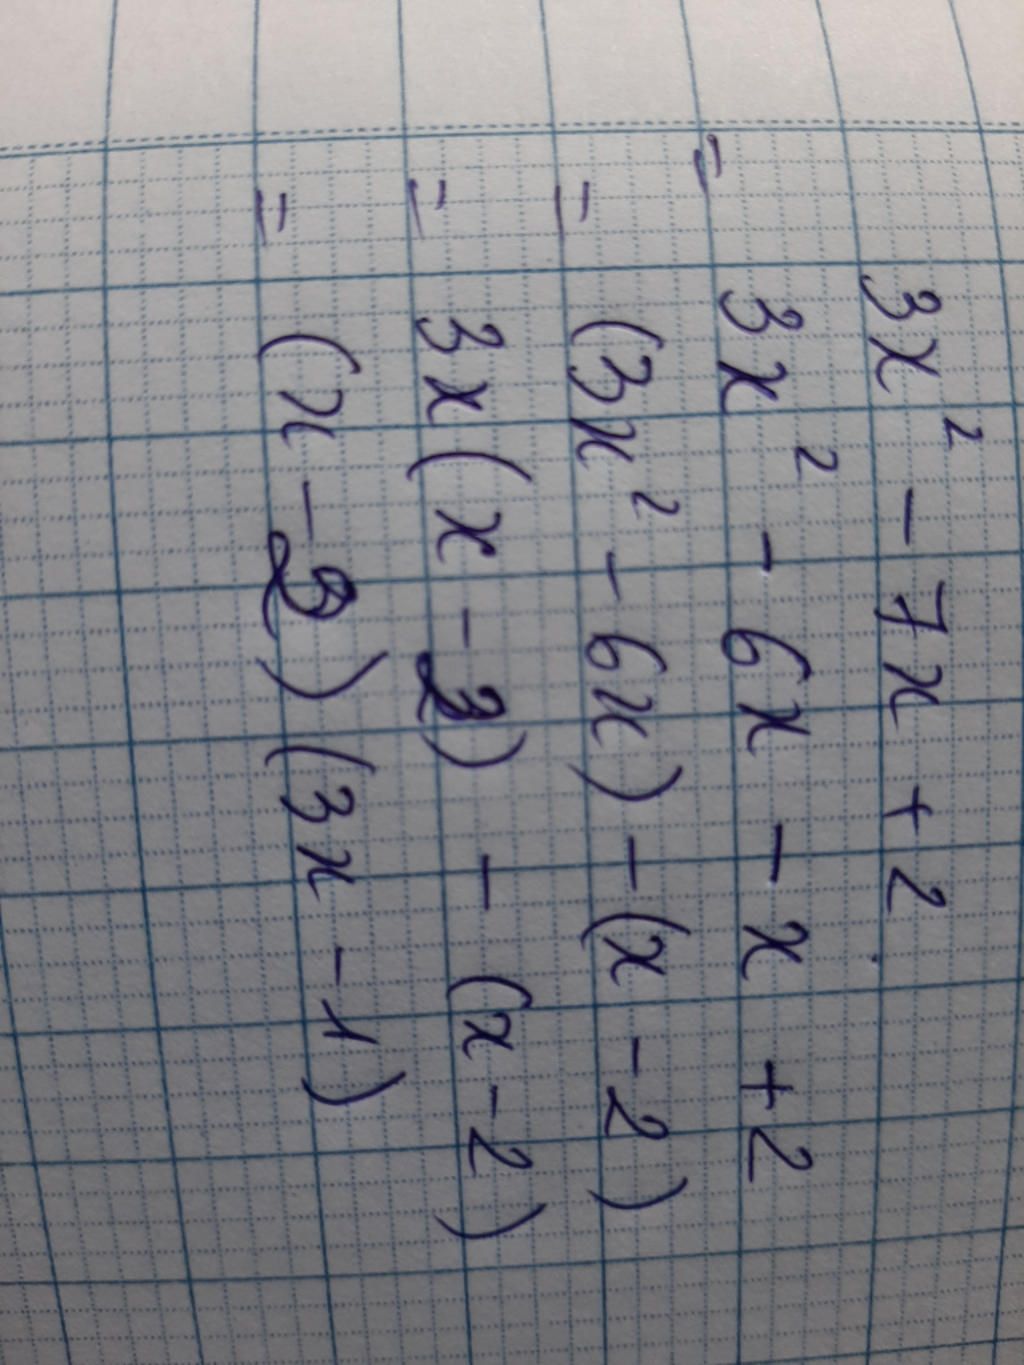 3x² - 7x + 2
= 3x² - 6x - x + 2
= (3x² - 6x) - (x - 2)
= 3x(x - 2) - (x - 2)
= (x - 2)(3x - 1)